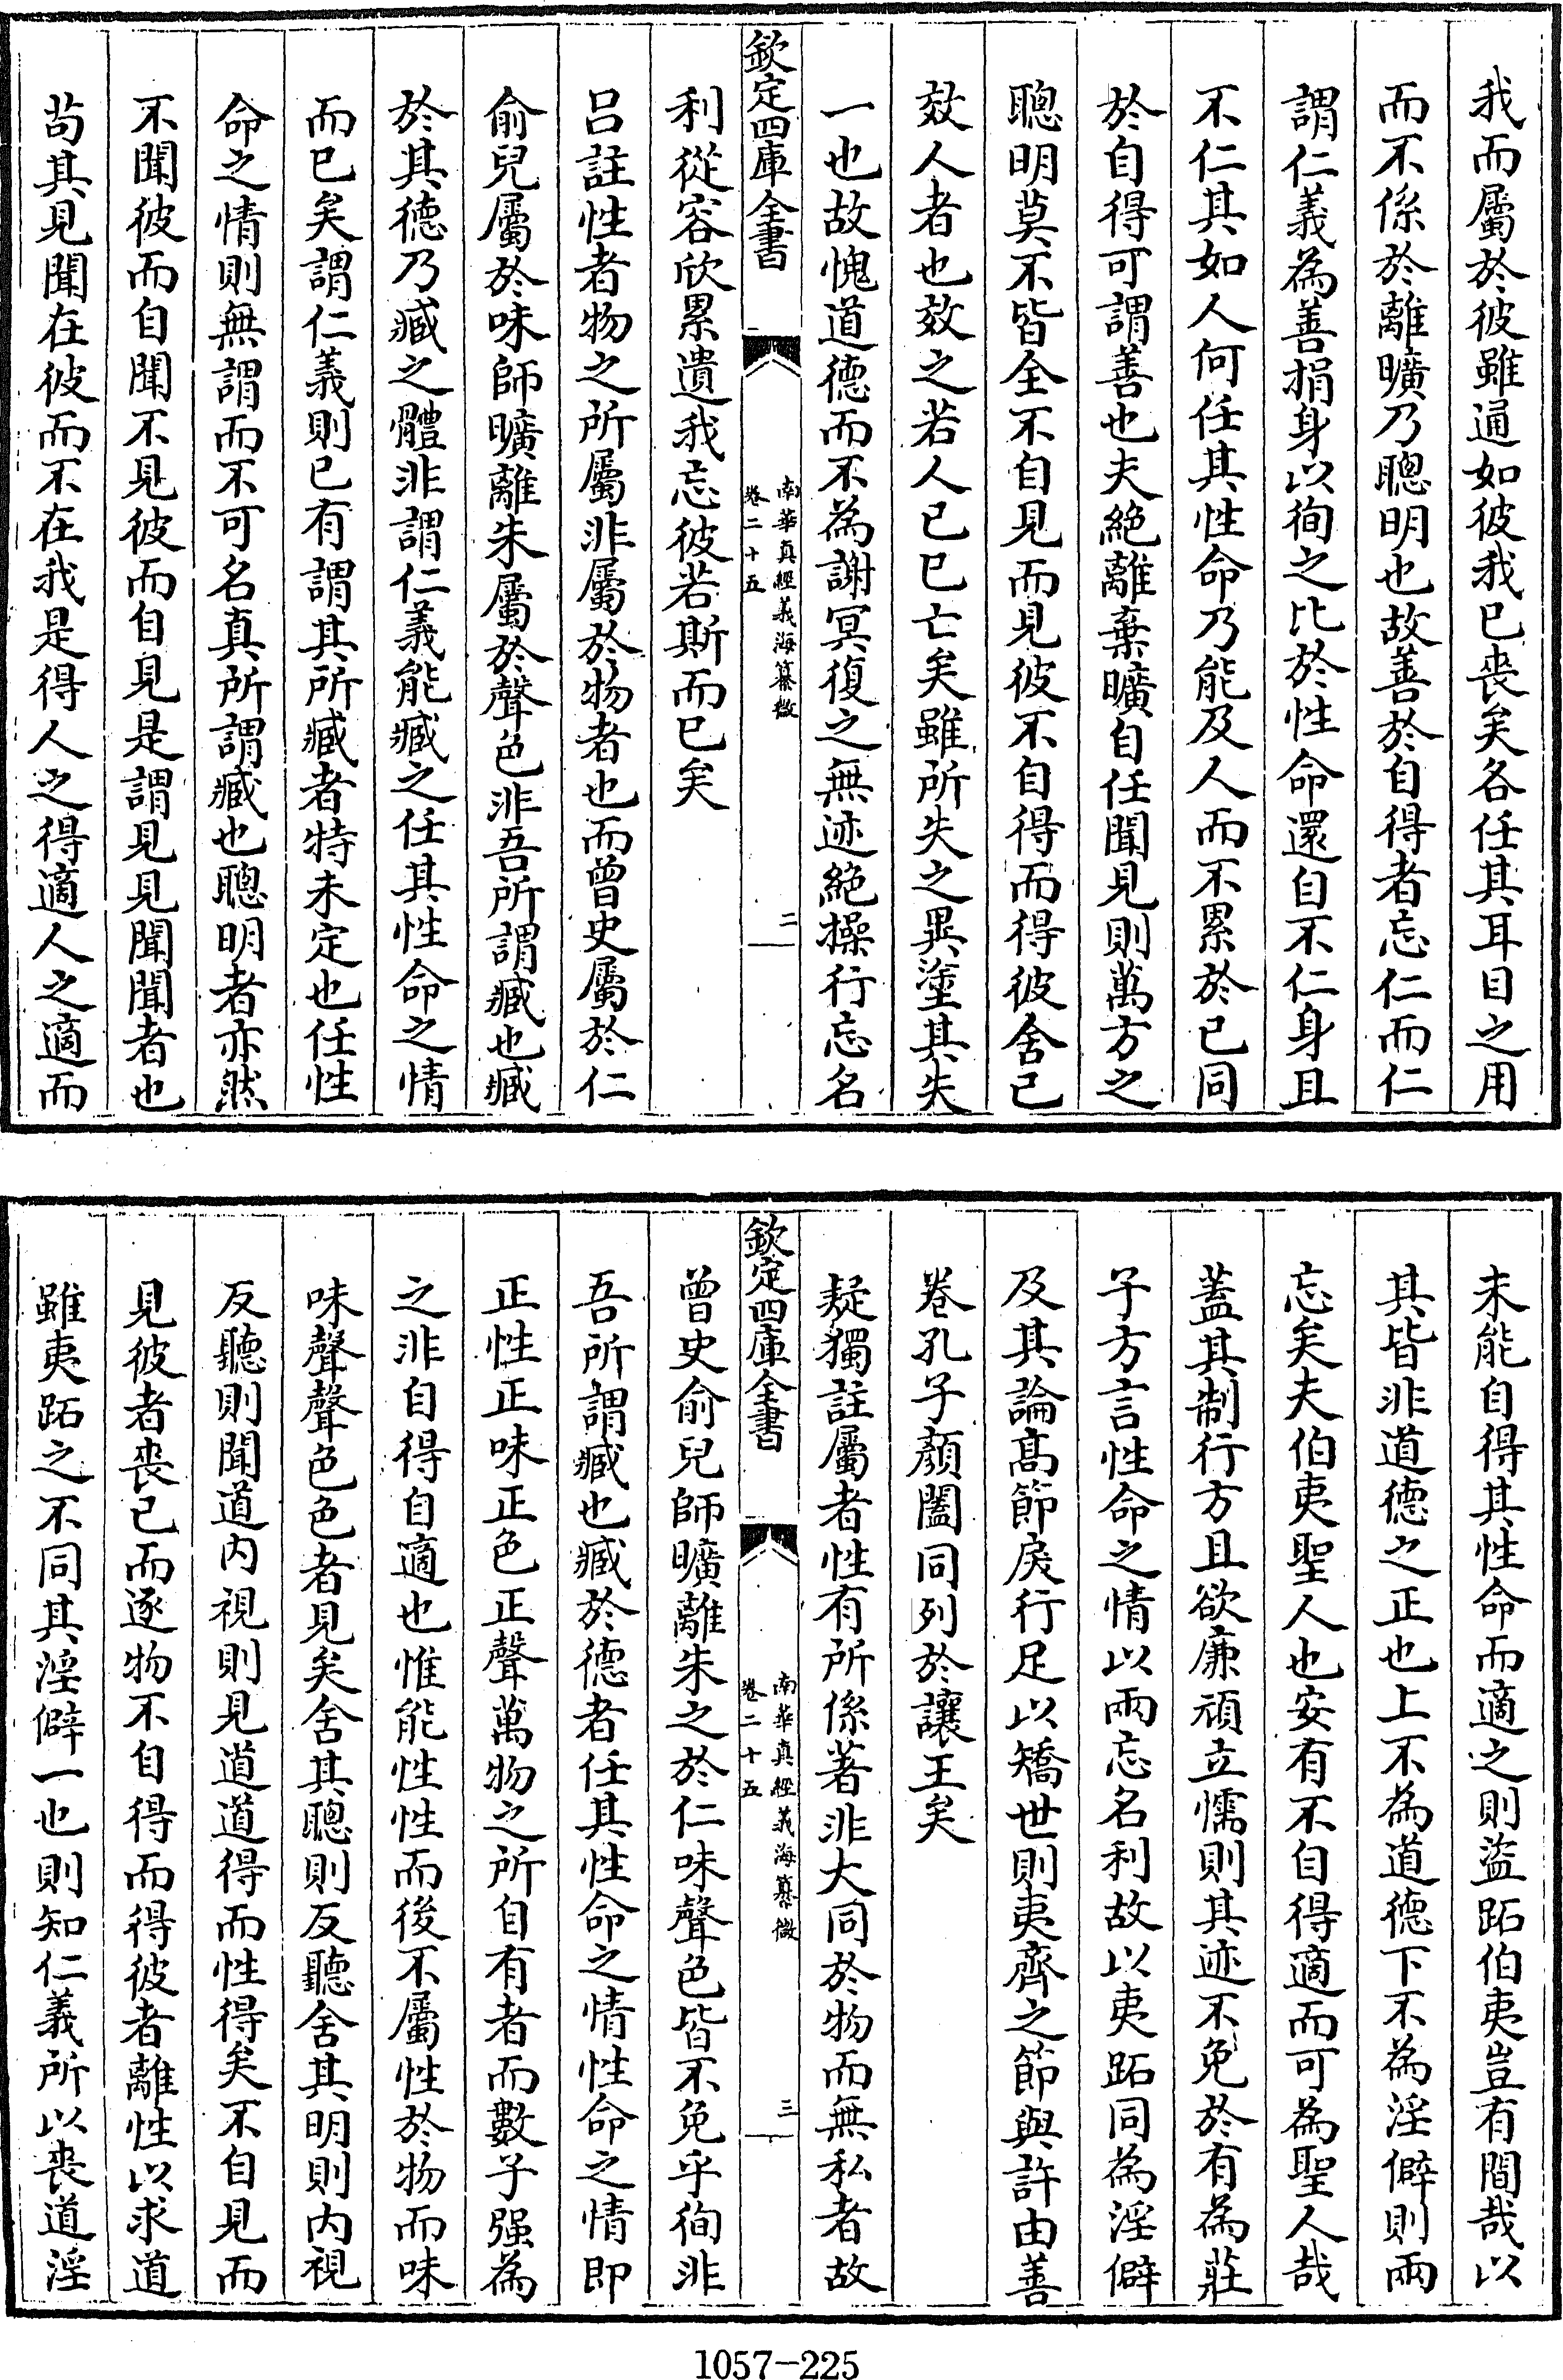 我而屬於彼雖通如彼我已喪矣各任其耳目之用
而不係於離曠乃聰明也故善於自得者忘仁而仁
謂仁義為善捐身以徇之比於性命還自不仁身且
不仁其如人何任其性命乃能及人而不累於已同
於自得可謂善也夫絶離棄曠自任聞見則萬方之
聰明莫不皆全不自見而見彼不自得而得彼舍已
效人者也效之若人已已亡矣雖所失之異塗其失
一也故愧道德而不為謝冥復之無迹絶操行忘名
欽定四庫全書
南華真經義海纂微
卷二十五
二
利從容欣累遺我忘彼若斯而已矣
呂註性者物之所屬非屬於物者也而曾史屬於仁
俞兒屬於味師曠離朱屬於聲色非吾所謂臧也臧
於其德乃臧之體非謂仁義能臧之任其性命之情
而已矣謂仁義則已有謂其所臧者特未定也任性
命之情則無謂而不可名真所謂臧也聰明者亦然
不聞彼而自聞不見彼而自見是謂見見聞聞者也
苟其見聞在彼而不在我是得人之得適人之適而
未能自得其性命而適之則盜跖伯夷豈有間哉以
其皆非道德之正也上不為道德下不為淫僻則兩
忘矣夫伯夷聖人也安有不自得適而可為聖人哉
蓋其制行方且欲廉頑立懦則其迹不免於有為莊
子方言性命之情以兩忘名利故以夷跖同為淫僻
及其論髙節戾行足以矯世則夷齊之節與許由善
卷孔子顔闔同列於讓王矣
疑獨註屬者性有所係著非大同於物而無私者故
欽定四庫全書
南華真經義海纂微
卷二十五
三
曾史俞兒師曠離朱之於仁味聲色皆不免乎徇非
吾所謂臧也臧於德者任其性命之情性命之情即
正性正味正色正聲萬物之所自有者而數子强為
之非自得自適也惟能性性而後不屬性於物而味
味聲聲色色者見矣舍其聰則反聽舍其明則内視
反聽則聞道内視則見道道得而性得矣不自見而
見彼者喪已而逐物不自得而得彼者離性以求道
雖夷跖之不同其淫僻一也則知仁義所以喪道淫
1057-225